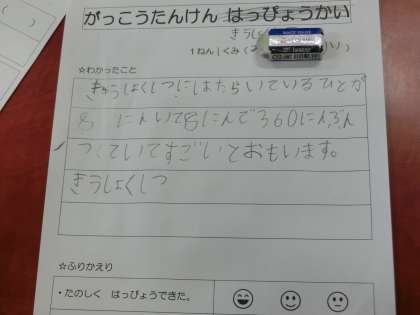 がっこうたんけん はっぴょうかい
きゅうし
1ねん1くみ(
☆わかったこと
きゅうしょくしつにはたらいているひとが
8 にんいて8にんで360にんぶん
つくていてすごいとおもいます。
きうしょくしつ
☆ふりかえり
・たのしく はっぴょうできた。